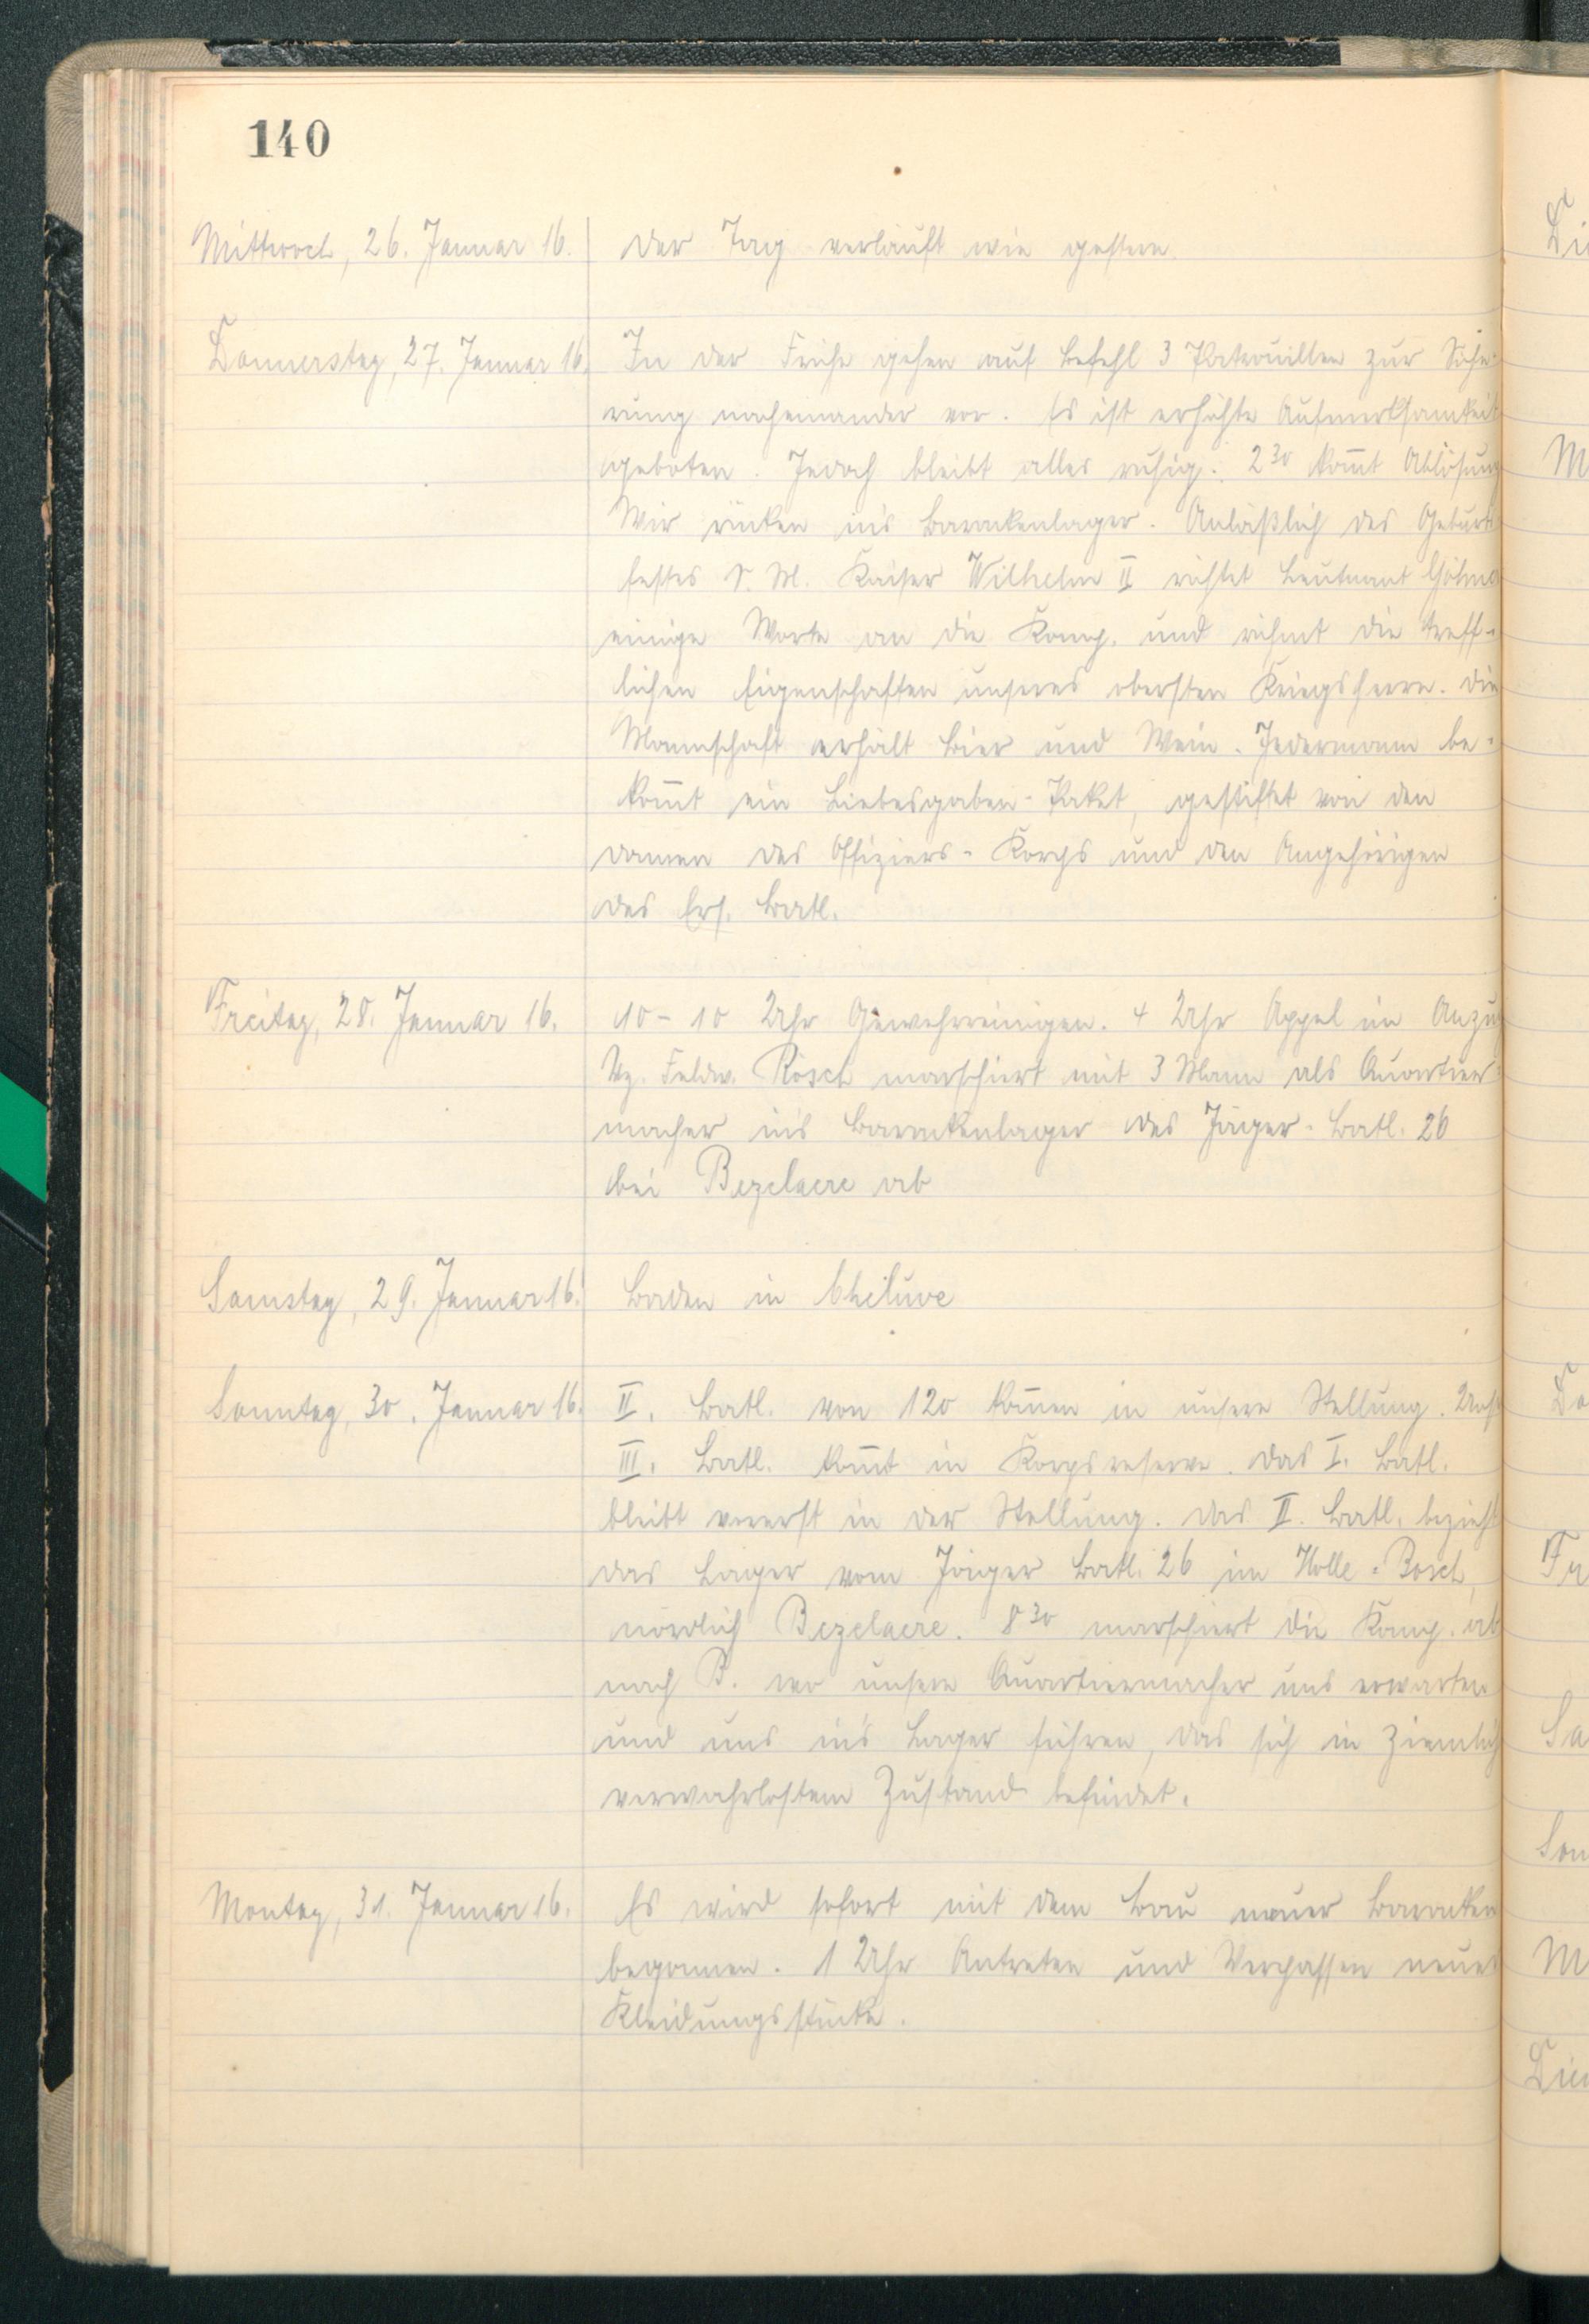 140
Mittwoch, 26. Januar 16. Der Tag verläuft wie gestern.
Donnerstag, 27. Januar 16. In der Frühe gehen auf Befehl 3 Patrouillen zur Siche-
rung nacheinander vor. Es ist erhöhte Aufmerksamkeit
geboten. Jedoch bleibt alles ruhig. 2³⁰ kom̅t Ablösung
Wir rücken in's Barackenlager. Anläßlich des Geburts
festes S. M. Kaiser Wilhelm II richtet Leutnant
einige Worte an die Komp. und rühmt die treff-
lichen Eigenschaften unseres obersten Kriegsherrn. Die
Mannschaft erhält Bier und Wein. Jedermann be-
kom̅t ein Liebesgaben-Paket, gestiftet von den
Damen des Offiziers-Korps und den Angehörigen
des Ers. Batl.
Freitag, 28. Januar 16. 10-10 Uhr Gewehrreinigen. 4 Uhr Appel im Anzug
Vz. Feldw. Rösch marschiert mit 3 Mann als Quartier-
macher in's Barackenlager des Jäger-Batl. 26
bei Bezelaere ab
Samstag, 29. Januar 16. Baden in Gheluve
Sonntag, 30. Januar 16. II. Batl. von 120 kom̅en in unsere Stellung. Unser
III. Batl. kom̅t in Korpsreserve. Das I. Batl.
bleibt vorerst in der Stellung. Das II. Batl. bezieht
das Lager vom Jäger Batl. 26 im Holle-Bosch,
nördlich Bezelaere. 8³⁰ marschiert die Komp. ab
nach B. wo unsere Quartiermacher uns erwarten
und uns in's Lager führen, das sich in ziemlich
verwahrlostem Zustand befindet.
Montag, 31. Januar 16. Es wird sofort mit dem Bau neuer Baracken
begonnen. 1 Uhr Antreten und Verpassen neuer
Kleidungsstücke.